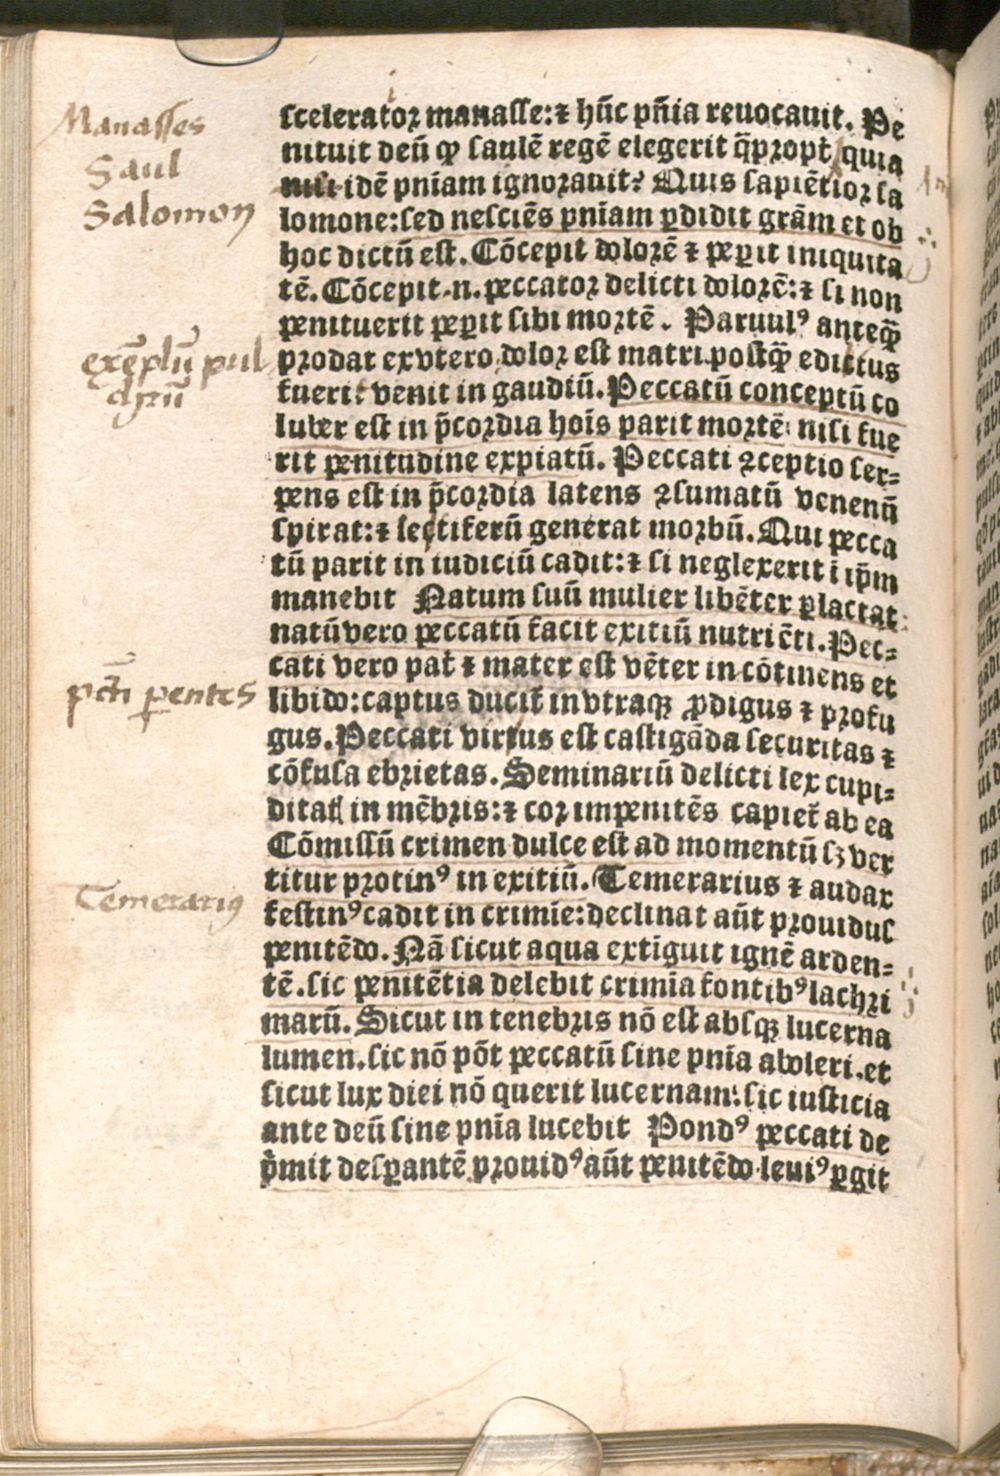 Manasses
Saul
Salomon
exēplū pul
chrū
pcti pentes
Temerariꝰ
sceleratoꝛ manasse:⁊ hūc pn̄ia reuocauit. Pe
nituit deū ꝙ saulē regē elegerit q̄pꝛopt̄ quia
nisi idē pnīam ignoꝛauit? Quis sapiētioꝛ sa
lomone:sed nesciēs pnīam ꝑdidit grām et ob
hoc dictū est. Cōcepit doloꝛē ⁊ peꝑit iniquita
tē. Cōcepit.n.peccatoꝛ delicti doloꝛē:⁊ si non
penituerit peꝑit sibi moꝛtē. Paruulꝰ anteꝙ̄
pꝛodat exvtero doloꝛ est matri.postꝙ̄ edictus
fuerit venit in gaudiū. Peccatū conceptū co
luber est in p̄coꝛdia hoīs parit moꝛtē: nisi fue
rit penitudine expiatū. Peccati ꝯceptio ser⸗
pens est in p̄coꝛdia latens ꝯsumatū venenū
spirat:⁊ sectiferū generat moꝛbū. Qui pecca
tū parit in iudiciū cadit:⁊ si neglexerit ī ip̄m
manebit Natum suū mulier libēter ꝑlactat:
natū vero peccatū facit exitiū nutriēti. Pec⸗
cati vero pat̄ ⁊ mater est vēter in cōtinens et
libido:captus ducit̄ in vtraqꝫ ꝓdigus ⁊ pꝛofu
gus. Peccati virtus est castigāda securitas ⁊
cōfusa ebꝛietas. Seminariū delicti lex cupi⸗
ditatꝭ in mēbꝛis:⁊ coꝛ impenitēs capiet̄ ab ea
Cōmissū crimen dulce est ad momentū sꝫ ver
titur pꝛotinꝰ in exitiū. Temerarius ⁊ audax
festinꝰ cadit in crimīe:declinat aūt pꝛouidus
penitēdo. Nā sicut aqua extīguit ignē arden⸗
tē.sic penitētia delebit crimīa fontibꝰ lachꝛi
marū. Sicut in tenebꝛis nō est absqꝫ lucerna
lumen.sic nō pōt peccatū sine pnīa aboleri.et
sicut lux diei nō querit lucernam:sic iusticia
ante deū sine pnīa lucebit Pondꝰ peccati de
p̄mit desꝑantē pꝛouidꝰ aūt penitēdo leuiꝰ ꝑgit